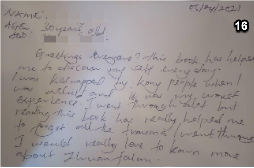 05/04/2021
16
NAME:
AGE: 30 years old.
Greetings everyone? This book has helped
me to discover my self every day.
I was kidnapped by many people when
I was and it was my worst
experience. I went through a lot but
reading this book has really helped me
to forget all the I went through
I would really love to know more
about